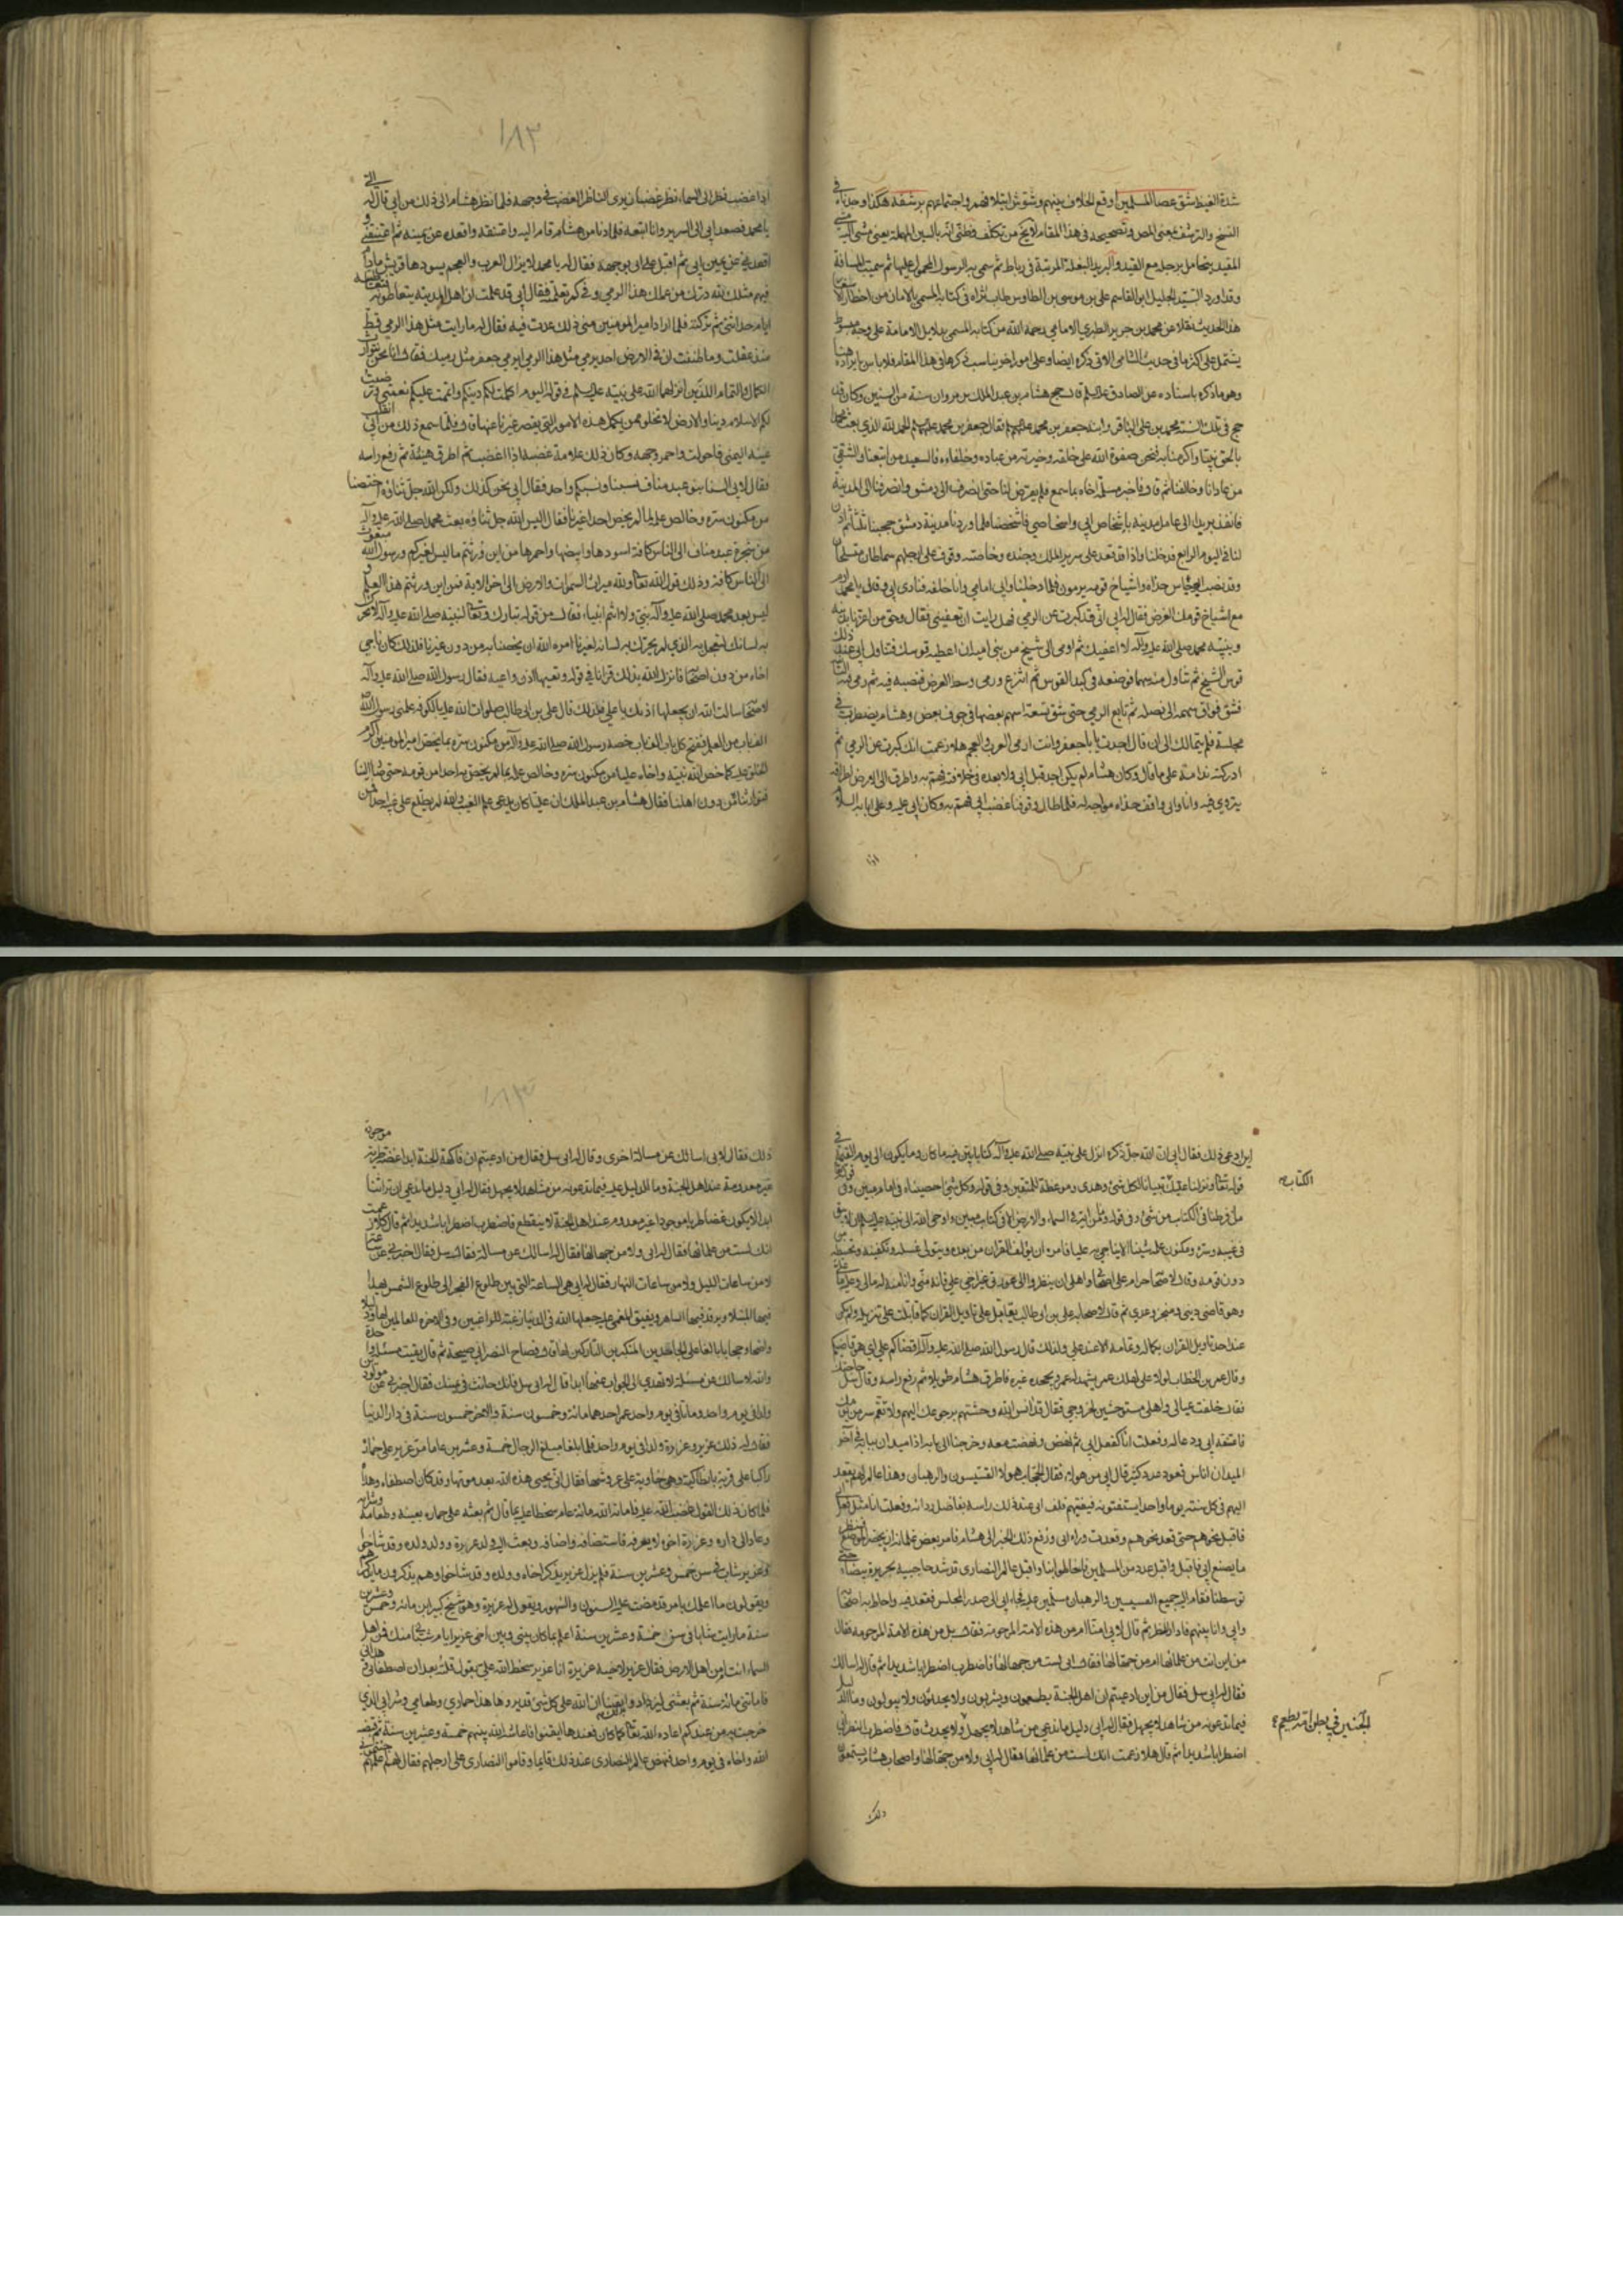 شدة الغيظ شق عصا المسلمين اوقع الخلاف بينهم وشوش ايتلافهم واجتماعهم برشفه هكذا وجدناه في
النسخ والترشف بمعنى المص وتصحيحه في هذا المقام لا يخ من تكلف وظني انه بالسين المهملة يعني مشى
المقيد يتحامل برجله مع القيد والبريد البغلة المرتبة في رباط ثم سمي به الرسول المحمول عليها ثم سميت المسافة
وقد اورد السيد الجليل ابو القاسم علي بن موسى بن الطاوس طاب ثراه في كتابه المسمى بالامان من اخطار
هذا الحديث نقلا عن محمد بن جرير الطبري الامامي رحمه الله من كتابه المسمى بدلايل الامامة على وجه مبسوط
يشتمل على اكثر ما في حديث الشامي الاتي ذكره ايضا وعلى امور اخر يناسب ذكرها في هذا المقام فلا باس بايراده هنا
وهو ما ذكره باسناده عن الصادق عليه السلم قال حج هشام بن عبد الملك بن مروان سنة من السنين وكان قد
حج في تلك السنة محمد بن علي الباقر وابنه جعفر بن محمد عليهم فقال جعفر بن محمد عليهم الحمد لله الذي بعث محمدا
بالحق نبيا واكرمنا به فنحن صفوة الله على خلقه وخيرته من عباده وخلفاءه فالسعيد من اتبعنا والشقي
من عادانا وخالفنا ثم قال فاخبر مسلمة اخاه بما سمع فلم يعرض لنا حتى انصرف الى دمشق وانصرفنا الى المدينة
فانفذ بريدا الى عامل مدينة باشخاص ابي واشخاصي فاشخصنا فلما وردنا مدينة دمشق حجبنا ثلثا ثم اذن
لنا في اليوم الرابع فدخلنا واذا قد قعد على سرير الملك وجنده وخاصته وقوف على ارجلهم سماطان متسلحان
وقد نصب البرجاس حذاه واشياخ قومه يرمون فلما دخلنا وابي امامي وانا خلفه فنادى ابي وقال يا محمد ارم
مع اشياخ قومك الغرض فقال له ابي اني قد كبرت عن الرمي فهل رايت ان تعفيني فقال وحق من اعزنا بدينه
ونبيه محمد صلى الله عليه وآله لا اعفيك ثم اومى الى شيخ من بني امية ان اعطه قوسك فتناول ابي عند ذلك
قوس الشيخ ثم تناول منه سهما فوضعه في كبد القوس ثم انتزع ورمى وسط الغرض فنصبه فيه ثم رمى فيه الثانية
فشق فواق سهمه الى نصله ثم تابع الرمي حتى شق تسعة اسهم بعضها في جوف بعض وهشام يضطرب في
مجلسه فلم يتمالك الى ان قال اجدت يا با جعفر وانت ارمى العرب والعجم هلا زعمت انك كبرت عن الرمي ثم
ادركته ندامة على ما قال وكان هشام لم يكن احد قبل ابي ولا بعده في خلافته فهم به واطرق الى الارض اطراقة
يتروى فيه وانا وابي واقف حذاه مواجه له فلما طال وقوفنا غضب ابي فهم به وكان ابي عليه وعلى ابائه السلام
اذا
١٨٢
اذا غضب نظر الى السماء نظر غضبان يرى الناظر الغضب في وجهه فلما نظر هشام الى ذلك من ابي قال له الي
يا محمد فصعد ابي الى السرير وانا اتبعه فلما دنا من هشام قام اليه واعتنقه واقعده عن يمينه ثم اعتنقني و
اقعدني عن يمين ابي ثم اقبل على ابي بوجهه فقال له يا محمد لا يزال العرب والعجم يسودها قريش مادام
فيهم مثلك لله درك من علمك هذا الرمي وفي كم تعلمته فقال ابي قد علمت ان اهل المدينة يتعاطونه فتعاطيته
ايام حداثتي ثم تركته فلما اراد امير المومنين مني ذلك عدت فيه فقال له ما رايت مثل هذا الرمي قط
منذ عقلت وما ظننت ان في الارض احد يرمي مثل هذا الرمي ايرمي جعفر مثل رميك فقال انا نحن نتوارث
الكمال والتمام اللذين انزلهما الله على نبيه عليه السلم في قوله اليوم اكملت لكم دينكم واتممت عليكم نعمتي ورضيت
لكم الاسلام دينا والارض لا تخلو ممن يكمل هذه الامور التي يقصر غيرنا عنها قال فلما سمع ذلك من ابي انقلب
عينه اليمنى فاحولت واحمر وجهه وكان ذلك علامة غضبه اذا غضب ثم اطرق هنيئة ثم رفع راسه
فقال لابي السنا بنو عبد مناف نسبنا ونسبكم واحد فقال ابي نحن كذلك ولكن الله جل ثناؤه اختصنا
من مكنون سره وخالص علمه بما لم يخص احدا غيرنا فقال اليس الله جل ثناؤه بعث محمدا صلى الله عليه وآله
من شجرة عبد مناف الى الناس كافة اسودها وابيضها واحمرها من اين ورثتم ما ليس لغيركم ورسول الله مبعوث
الى الناس كافة وذلك قول الله تعالى ولله ميراث السموات والارض الى اخر الاية فمن اين ورثتم هذا العلم و
ليس بعد محمد صلى الله عليه وآله نبي ولا انتم انبياء فقال من قوله تبارك وتعالى لنبيه صلى الله عليه وآله لا تحرك
به لسانك لتعجل به الذي لم يحرك به لسانه لغيرنا امره الله ان يخصنا به من دون غيرنا فلذلك كان ناجى
اخاه من دون اصحابه فانزل الله بذلك قرانا في قوله وتعيها اذن واعية فقال رسول الله صلى الله عليه وآله
لاصحابه سالت الله ان يجعلها اذنك يا علي فلذلك قال علي بن ابي طالب صلوات الله عليه بالكوفة علمني رسول الله
الف باب من العلم ففتح كل باب الف باب خصه رسول الله صلى الله عليه وآله من مكنون سره بما يخص امير المومنين اكرم
الخلق عليه كما خص الله نبيه واخاه عليا من مكنون سره وخالص علمه بما لم يخص به احدا من قومه حتى صار الينا
فتوارثنا من دون اهلنا فقال هشام بن عبد الملك ان عليا كان يدعي علم الغيب والله لم يطلع على غيبه احدا فمن
اين ادعى ذلك فقال ابي ان الله جل ذكره انزل على نبيه صلى الله عليه وآله كتابا بين فيه ما كان وما يكون الى يوم القيمة في
قوله تعالى ونزلنا عليك تبيانا لكل شئ وهدى وموعظة للمتقين وفي قوله وكل شئ احصيناه في امام مبين وفي قوله
الكتاب
ما فرطنا في الكتاب من شئ وفي قوله وما من غائبة في السماء والارض الا في كتاب مبين واوحى الله الى نبيه عليه السلم ان لا يبقى
في غيبه وسره ومكنون علمه شيئا الا يناجي به عليا فامره ان يؤلف القران من بعده ويتولى غسله وتكفينه وتحنيطه من
دون قومه وقال لاصحابه حرام على اصحابي واهلي ان ينظروا الى عورتي غير اخي علي فانه مني وانا منه له مالي وعليه ما علي
وهو قاضي ديني ومنجز وعدي ثم قال لاصحابه علي بن ابي طالب يقاتل على تاويل القران كما قاتلت على تنزيله ولم يكن
عند احد تاويل القران بكماله وتمامه الا عند علي ولذلك قال رسول الله صلى الله عليه وآله اقضاكم علي اي هو قاضيكم
وقال عمر بن الخطاب لولا علي لهلك عمر يشهد له عمر ويجحده غيره فاطرق هشام طويلا ثم رفع راسه وقال سل حاجتك
فقال خلفت عيالي واهلي مستوحشين لخروجي فقال قد انس الله وحشتهم برجوعك اليهم ولا تقم سر من يومك
فاعتنقه ابي ودعا له وفعلت انا كفعل ابي ثم نهض ونهضت معه وخرجنا الى بابه اذا ميدان ببابه وفي اخر
الميدان اناس قعود عدد كثير قال ابي من هولاء فقال الحجاب هولاء القسيسون والرهبان وهذا عالم لهم يقعد
اليهم في كل سنة يوما واحدا يستفتونه فيفتيهم فلف ابي عند ذلك راسه بفاضل ردائه وفعلت انا مثل فعل ابي
فاقبل نحوهم حتى قعد نحوهم وقعدت وراء ابي ورفع ذلك الخبر الى هشام فامر بعض غلمانه ان يحضر الموضع فينظر
ما يصنع ابي فاقبل واقبل عدد من المسلمين فاحاطوا بنا واقبل عالم النصارى قد شد حاجبيه بحريرة صفراء حتى
توسطنا فقام اليه جميع القسيسين والرهبان مسلمين عليه فجاء الى صدر المجلس فقعد فيه واحاط به اصحابه
وابي وانا بينهم فادار نظره ثم قال لابي امنا ام من هذه الامة المرحومة فقال ابي بل من هذه الامة المرحومة فقال
من اين انت من علمائها ام من جهالها فقال ابي لست من جهالها فاضطرب اضطرابا شديدا ثم قال له اسالك
فقال له ابي سل فقال من اين ادعيتم ان اهل الجنة يطعمون ويشربون ولا يحدثون ولا يبولون وما الدليل
فيما تدعونه من شاهد لا يجهل فقال له ابي دليل ما ندعي من شاهد لا يجهل ولا يحدث قال فاضطرب النصراني
الجنين في بطن امه يطعم
اضطرابا شديدا ثم قال هلا زعمت انك لست من علمائها فقال له ابي ولا من جهالها واصحاب هشام يستمعون
ذلك
١٨٣
ذلك فقال لابي اسالك عن مسالة اخرى وقال له ابي سل فقال من ادعيتم ان فاكهة الجنة ابدا غضة طرية موجودة
غير معدومة عند اهل الجنة وما الدليل عليه فيما تدعونه من مشاهد لا يجهل فقال له ابي دليل ما ندعي ان ترابنا
ابدا لا يكون غضا طريا موجودا غير معدوم عند اهل الجنة لا ينقطع فاضطرب اضطرابا شديدا ثم قال كلا زعمت
انك لست من علمائها فقال له ابي ولا من جهالها فقال له اسالك عن مسالة فقال سل فقال اخبرني عن ساعة
لا من ساعات الليل ولا من ساعات النهار فقال له ابي هي الساعة التي بين طلوع الفجر الى طلوع الشمس يهدا
فيها المبتلا ويرقد فيها الساهر ويفيق المغمى عليه جعلها الله في الدنيا رغبة للراغبين وفي الاخرة للعاملين لها
واضحا وحجابا بالغا على الجاحدين المتكبرين التاركين لها قال فصاح النصراني صيحة ثم قال بقيت مسئلة واحدة
والله لاسالك عن مسئلة لا تهدي الى الجواب عنها ابدا قال له ابي سل فانك حانث في يمينك فقال اخبرني عن مولودين
ولدا في يوم واحد وماتا في يوم واحد عمر احدهما مائة وخمسون سنة والاخر خمسون سنة في دار الدنيا
فقال له ذلك عزير وعزرة ولدا في يوم واحد فلما بلغا مبلغ الرجال خمسة وعشرين عاما مر عزير على حماره
راكبا على قرية بانطاكية وهي خاوية على عروشها فقال انى يحيي هذه الله بعد موتها وقد كان اصطفاه وهداه
فلما كان ذلك القول غضب الله عليه فاماته الله مائة عام سخطا عليه بما قال ثم بعثه على حماره بعينه وطعامه وشرابه
وعاد الى داره وعزرة اخوه لا يعرفه فاستضافه واضافه وبعث اليه ولد عزرة وولد ولده وقد شاخوا
وعزير شاب في سن خمس وعشرين سنة فلم يزل عزير يذكر اخاه وولده وقد شاخوا وهم يذكرون ما يذكرهم
ويقولون ما اعلمك بامر قد مضت عليه السنون والشهور ويقول له عزرة وهو شيخ كبير ابن مائة وخمس وعشرين
سنة ما رايت شابا في سن خمسة وعشرين سنة اعلم بما كان بيني وبين اخي عزير ايام شبابي منك فمن اهل
السماء انت ام من اهل الارض فقال عزير لاخيه عزرة انا عزير سخط الله علي بقول قلته بعد ان اصطفاني وهداني
فاماتني مائة سنة ثم بعثني ليزدادوا يقينا ان الله على كل شئ قدير وها هذا حماري وطعامي وشرابي الذي
خرجت به من عندكم اعاده الله تعالى كما كان فعندها ايقنوا فاعاشه الله بينهم خمسة وعشرين سنة ثم قبضه
الله واخاه في يوم واحد فنهض عالم النصارى عند ذلك قائما وقاموا النصارى على ارجلهم فقال لهم عالمهم جئتموني